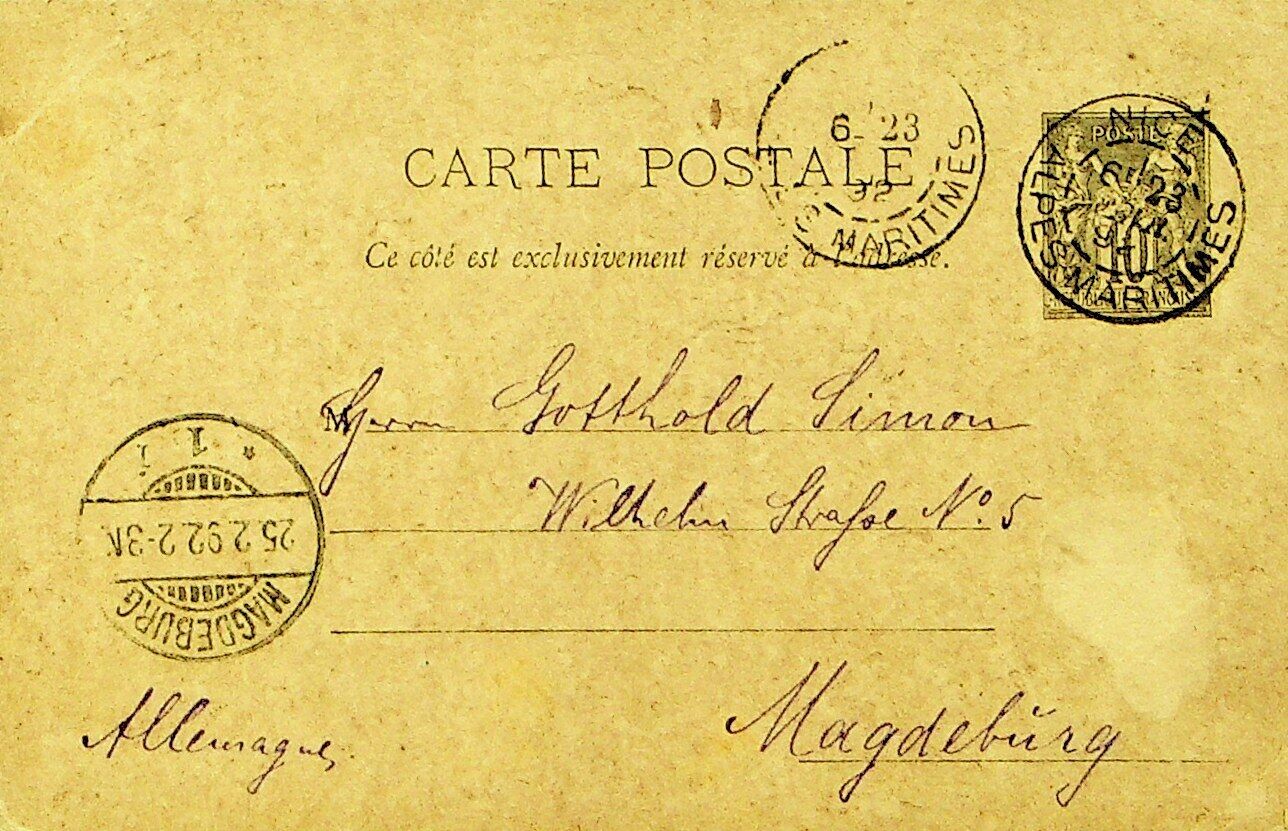 CARTE POSTALE
Ce côté est exclusivement réservé à l'adresse.
6- 23
92
MARITIMES
POSTE
NICE
6- 23
10
ALPES MARITIMES
M
Herrn Gotthold Simon
Wilhelm Strasse No. 5
Magdeburg
Allemagne
* 1 i
25.2.92.2-3N
MAGDEBURG